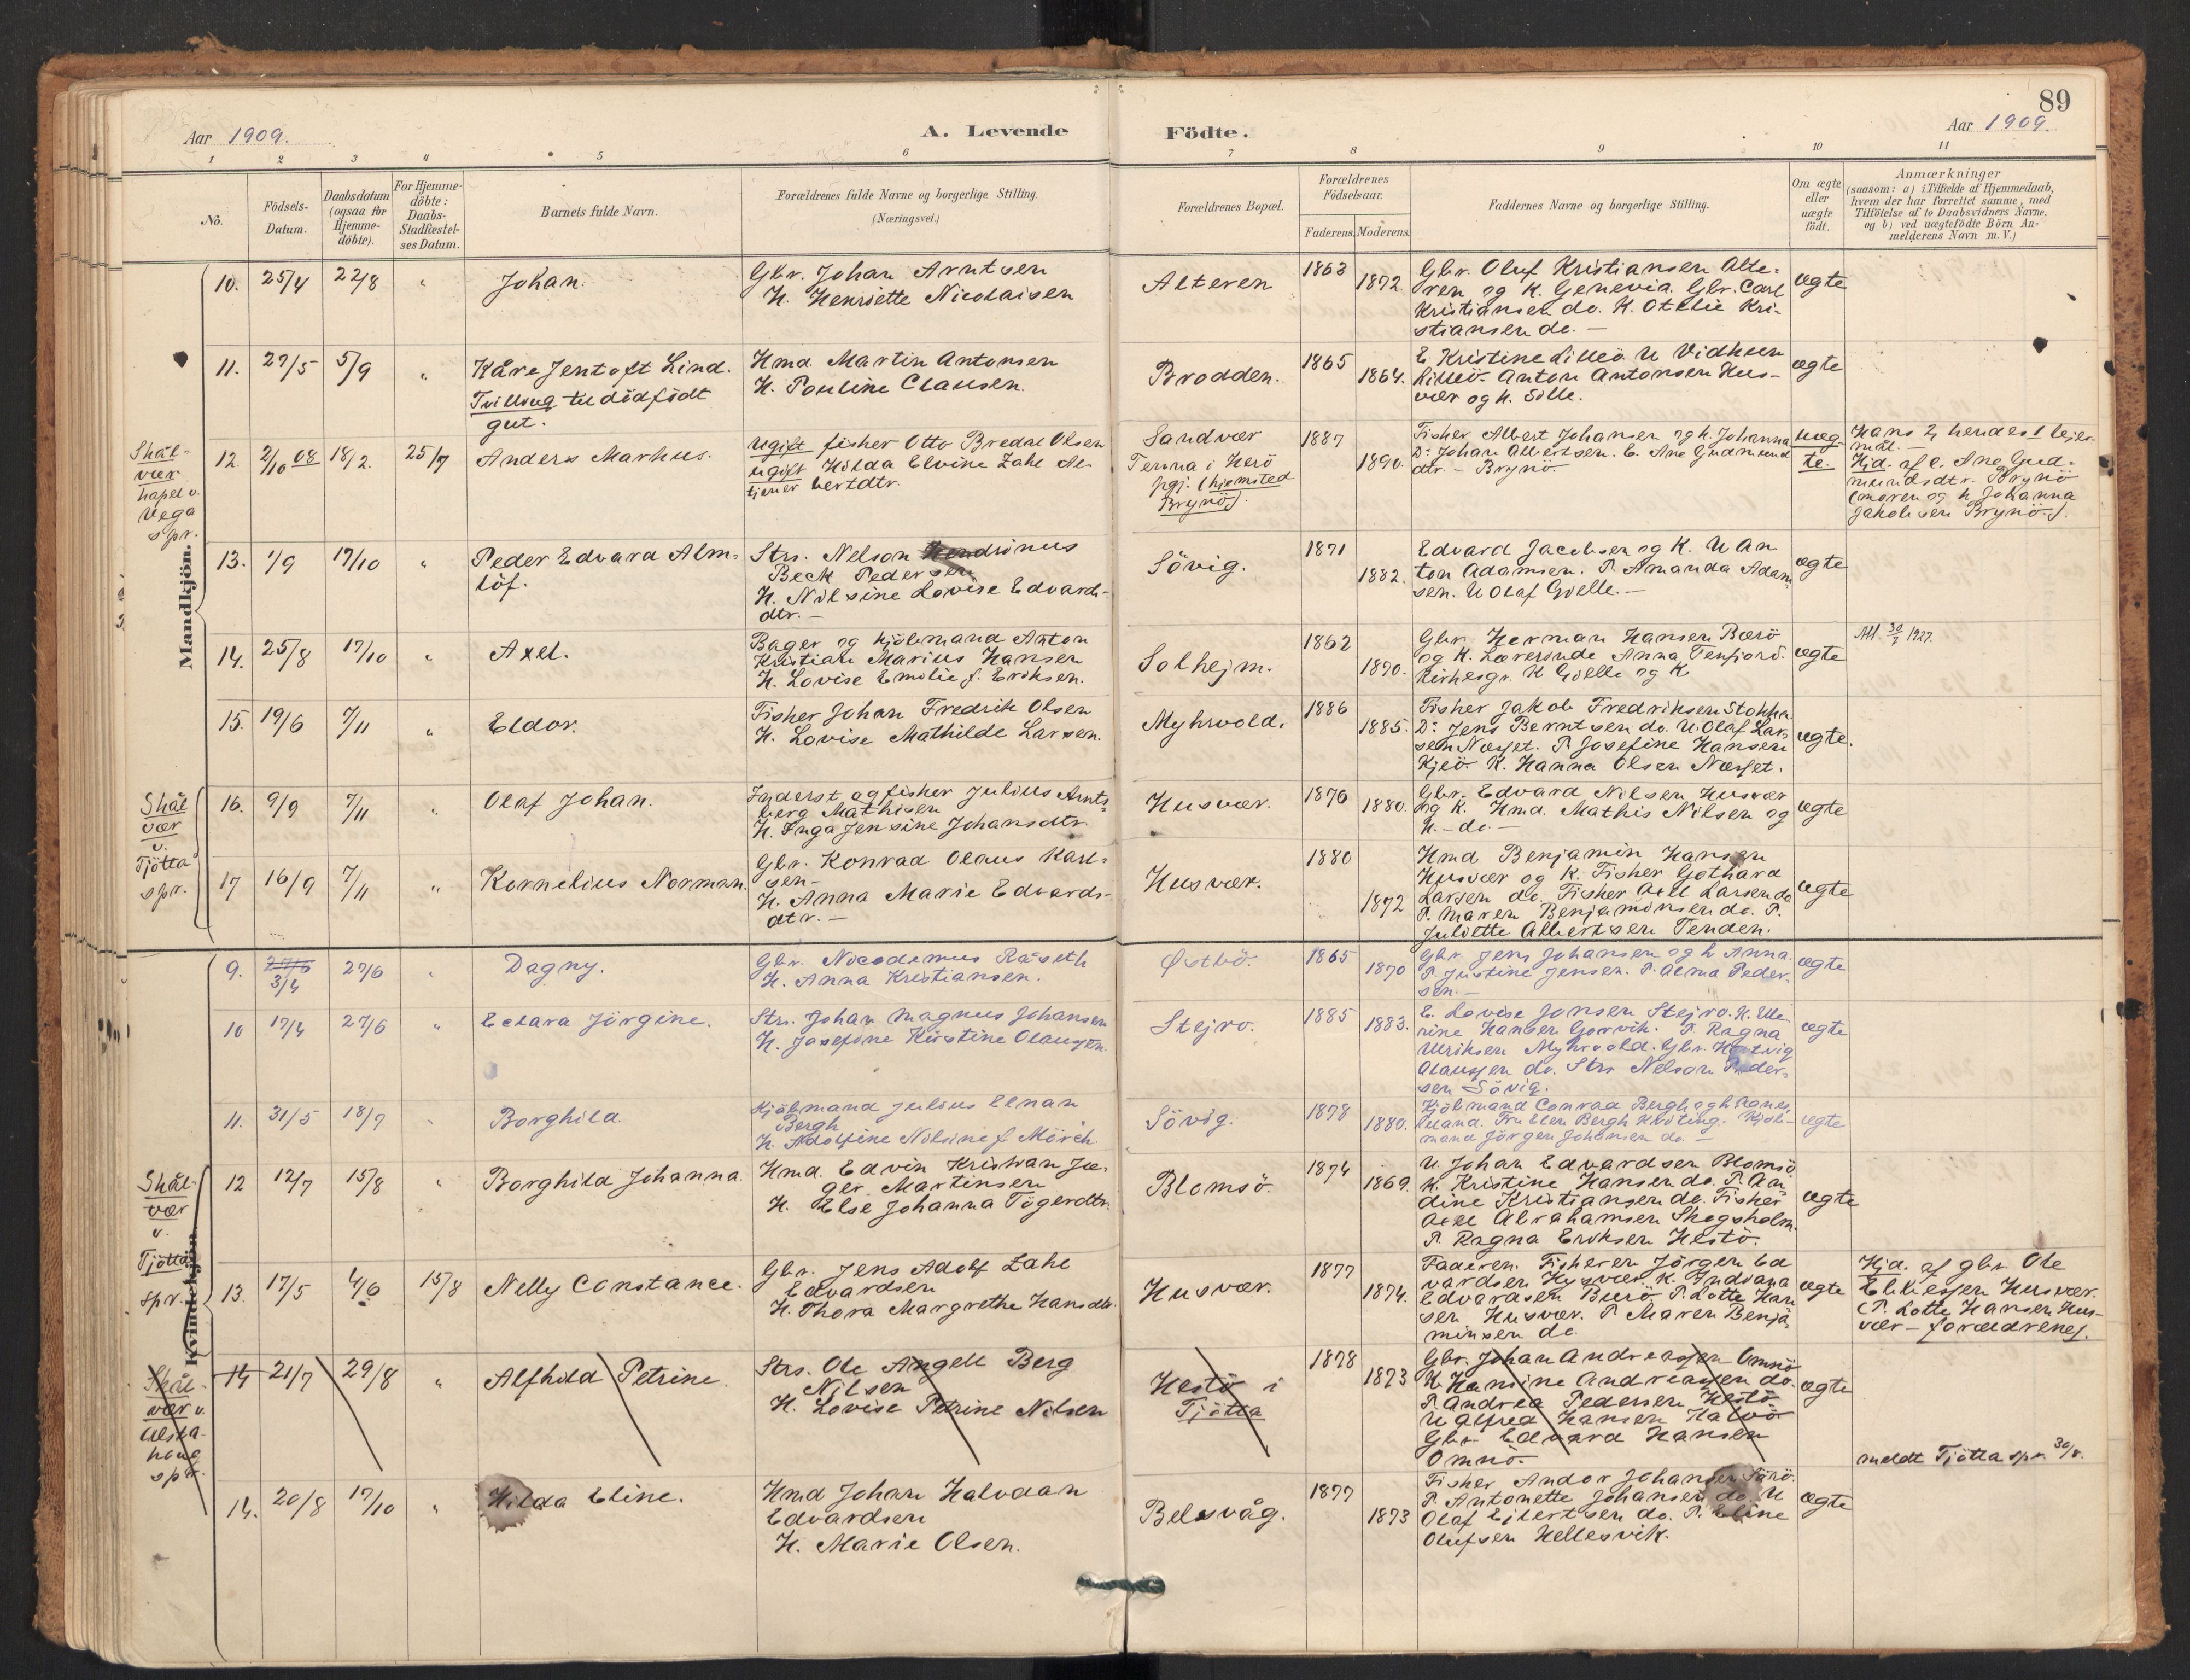 89
Aar 1909.
A. Levende
Födte.
Aar 1909.
1 2 3 4 5 6 7 8 9 10 11
No.
Födsels-
Datum.
Daabsdatum
(ogsaa for
Hjemme-
döbte).
For Hjemme-
döbte:
Daabs-
Stadfæstel-
ses Datum.
Barnets fulde Navn.
Forældrenes fulde Navne og borgerlige Stilling.
(Næringsvei.)
Forældrenes Bopæl.
Forældrenes
Födselsaar.
Faderens. Moderens.
Faddernes Navne og borgerlige Stilling.
Om ægte
eller
uægte
födt.
Anmærkninger
(saasom: a) i Tilfælde af Hjemmedaab,
hvem der har forrettet samme, med
Tilföielse af to Daabsvidners Navne,
og b) ved uægtefödte Börn An-
melderens Navn m. V.)
Mandkjön.
10. 25/4 22/8 "
Johan.
Gbr. Johan Arntsen
H. Henriette Nicolaisen
Alteren
1863
1872.
Gbr. Oluf Kristiansen Alte-
ren og K. Genevia. Gbr. Carl
Kristiansen do. K. Otelie Kri-
stiansen do. —
ægte
11. 27/5 5/9 "
Kåre Jentoft Lind.
Tvilling til dödfödt
gut.
Hmd. Martin Antonsen
H. Pouline Clausen.
Brodden.
1865
1864.
E. Kristine Lilleö U Vidkun
Lilleö. Anton Antonsen Hus-
vær og H. Sille.
ægte
Skål-
vær
kapel v.
Vega
spr.
12. 2/10 08 18/2. 25/7
Anders Markus.
ugift fisker Otto Bredal Olsen
ugift Hilda Elvine Zahl
tjener bertdtr.
Sandvær
Tenna i Herö
pgj. (hjemsted
Brynö).
1887
1890.
Fisker Albert Johansen og h. Johanna
D: Johan Albertsen. E. Ane Gudmund
dtr. - Brynö
uæg-
te.
Hans 2, hendes 1 lejer-
mål. —
Hjd. af e. Ane Gud-
mundsdtr. Brynö
(moren og h Johanna
Jakobsen Brynö).
13. 1/9 17/10 "
Peder Edvard Alm-
löf.
Strs. Nelson Hendrinus
Beck Pedersen
H. Nilsine Lovise Edvards-
dtr. —
Sövig.
1871
1882.
Edvard Jacobsen og K. U An
ton Adamsen. P. Amanda Adam
sen. U Olaf Gjelle. —
ægte
14. 25/8 17/10 "
Axel.
Bager og kjöbmand Anton
Kristian Marius Hansen
H. Lovise Emilie f. Eriksen.
Solhejm.
1862
1870.
Gbr. Herman Hansen Bærö
og K. Lærerinde Anna Tenfjord.
Kirkesgr. K Gjelle og K
ægte
Att. 30/7 1927.
15. 19/6 7/11 "
Eldor.
Fisker Johan Fredrik Olsen
H. Lovise Mathilde Larsen.
Myhrvold.
1886
1885.
Fisker Jakob Fredriksen Stokka.
D: Jens Berntsen do. U. Olaf Lar-
sen Næsset. P Josefine Hansen
Kjeö. K. Hanna Olsen Næsset.
ægte.
Skål
vær
v.
Tjötta
spr.
16. 9/9 7/11 "
Olaf Johan.
Inderst og fisker Julius Arnts-
berg Mathisen
H. Inga Jensine Johansdtr.
Husvær.
1876
1880.
Gbr. Edvard Nilsen Husvær
og K. Hmd. Mathis Nilsen og
H. - do. —
ægte
17 16/9 7/11 "
Kornelius Norman.
Gbr. Konrad Olaus Karl-
sen -
H. Anna Marie Edvards-
dtr. —
Husvær.
1880
1872
Hmd Benjamin Hansen
Husvær og K. Fisker Gothard
Larsen do. Fisker Axel Larsen do
P. Maren Benjaminsen do. P.
Juliette Albertsen Tenden.
ægte
Kvindekjön.
9. 27/5 3/4 27/6 "
Dagny.
Gbr. Nicodemus Råseth
H. Anna Kristiansen.
Östbö.
1865
1870
Gbr. Jens Johansen og h Anna.
P. Justine Jensen. P. Alma Peder-
sen. —
ægte
10 17/4 27/6 "
Eclara Jörgine.
Strs. Johan Magnus Johansen
H. Josefine Kirstine Olaussen.
Stejro.
1885
1883.
E. Lovise Jonsen Stejro. K. Elle
rine Hansen Gorvik. P Ragna
Ulriksen Myhrvold. Gbr. Hartvig
Olaussen do. Strs Nelson Peder-
sen Sövig.
ægte
11. 31/5 18/7 "
Borghild.
Kjöbmand Julius Elnan
Bergh
H. Adolfine Nilsine f Mörch.
Sövig.
1878
1880.
Kjöbmand Conrad Bergh og h Agnes
Fru Ellen Bergh Kjöb-
mand Jörgen Johansen do —
ægte
Skål-
vær
v.
Tjötta
spr.
12 12/7 15/8 "
Borghild Johanna.
Hmd. Edvin Kristian Jæ-
ger Martinsen
H. Else Johanna Tögersdtr.
Blomsö.
1874
1869.
U. Johan Edvardsen Blomsö
K. Kristine Hansen do. P. An
dine Kristiansen do. Fisker
Axel Abrahamsen Skogsholm.
P. Ragna Eriksen Hestö.
ægte
13. 17/5 4/6 15/8
Nelly Constance.
Gbr. Jens Adolf Zahl
Edvardsen
H. Thora Margrethe Hansdtr.
Husvær.
1877
1874.
Faderen. Fiskeren Jörgen Ed
vardsen Husvær K. Indiana
Edvardsen Burö. P. Lotte Han
sen Husvær. P Maren Benja-
minsen do.
ægte
Hjd. af gbr. Ole
Ellissen Husvær.
(P. Lotte Hansen Hus-
vær - forældrene).
Skål-
vær v.
Alsta-
houg
spr.
14 21/7 29/8 "
Alfhild Petrine.
Strs. Ole Angell Berg
Nilsen
H. Lovise Petrine Nilsen
Hestö i
Tjötta
1878
1873
Gbr. Johan Andreassen Omnö
H. Hansine Andreassen do.
P. Andrea Pedersen Hestö
U Alfred Hansen Halvö
Gbr Edvard Hansen
Omnö.
ægte
meldt Tjötta spr. 30/8.
14. 20/8 17/10 "
Hilda Eline.
Hmd Johan Halvdan
Edvardsen
H. Marie Olsen.
Belsvåg.
1877
1873
Fisker Andor Johansen Färö.
P. Antonette Johansen do. U
Olaf Eilertsen do. P. Eline
Olufsen Hellesvik.
ægte